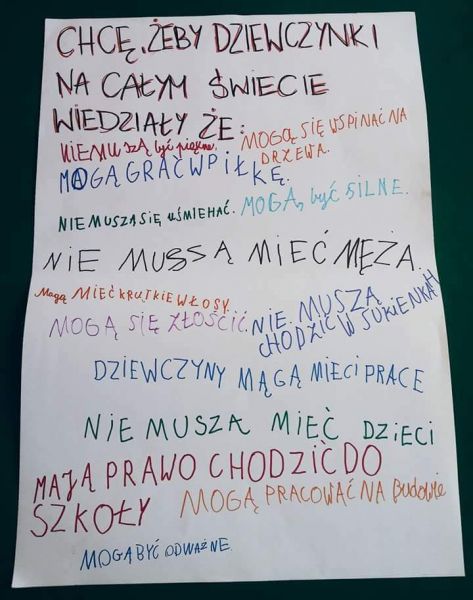 CHCĘ, ŻEBY DZIEWCZYNKI
NA CAŁYM ŚWIECIE
WIEDZIAŁY ŻE:
NIEMUSZĄ być piękne.
MOGĄ SIĘ WSPINAĆ NA
DRZEWA.
MAGĄ GRAĆ W PIŁKĘ.
MOGĄ, być SILNE.
NIE MUSZĄ SIĘ UŚMIEHAĆ.
NIE MUSSĄ MIEĆ MĘŻA.
Mogą MIEĆ KRUTKIE WŁOSY.
NIE MUSZĄ
CHODZIĆ W SUKIENKAH
MOGĄ SIĘ ZŁOŚCIĆ.
DZIEWCZYNY MĄGĄ MIECI PRACE
NIE MUSZĄ MIEĆ DZIECI
MAJĄ PRAWO CHODZIĆ DO
SZKOŁY
MOGĄ PRACOWAĆ NA budowie
MOGĄ BYĆ ODWAŻNE.